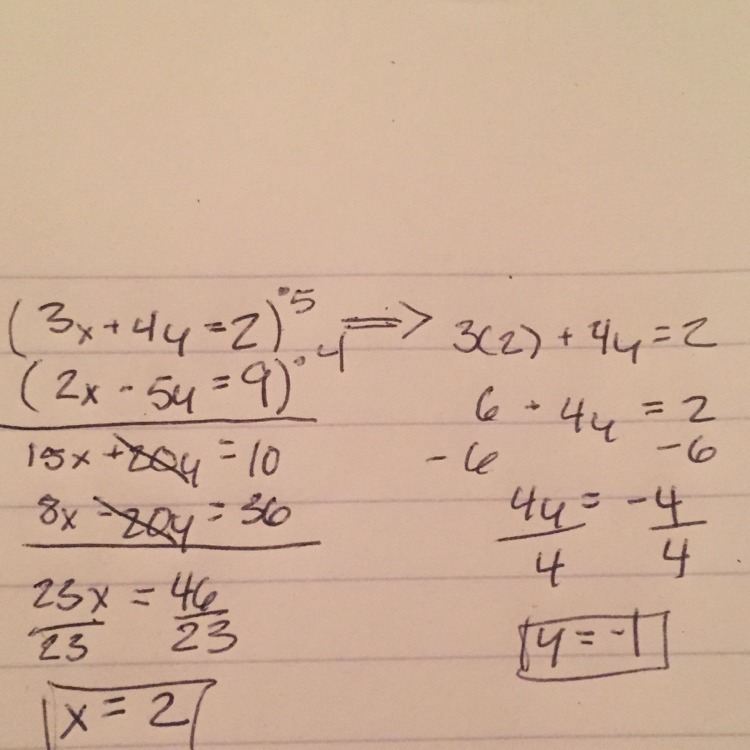 (3x+4y=2)·5 ⟹
(2x-5y=9)·4
15x+20y=10
8x-20y=36
23x = 46
23 23
x = 2
3(2)+4y=2
6 + 4y = 2
-6 -6
4y = -4
4 4
y = -1